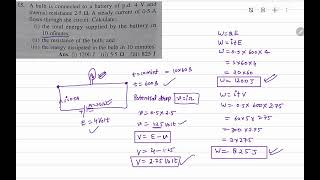 15. A bulb is connected to a battery of p.d. 4 V and
internal resistance 2·5 Ω. A steady current of 0·5 A
flows through the circuit. Calculate :
(i) the total energy supplied by the battery in
10 minutes,
(ii) the resistance of the bulb, and
(iii) the energy dissipated in the bulb in 10 minutes.
Ans. (i) 1200 J (ii) 5·5 Ω (iii) 825 J
i=0.5A
E = 4Volt
t = 10 × 60 s
t = 600 s
Potential drop
V = 0.5 × 2.5
V = 1.25 Volt
V = E − v
V = 4 − 1.25
V = 2.75 Volt
W = itE
W = 0.5 × 600 × 4
W = 1200 J
W = itV
W = 0.5 × 600 × 2.75
W = 825 J